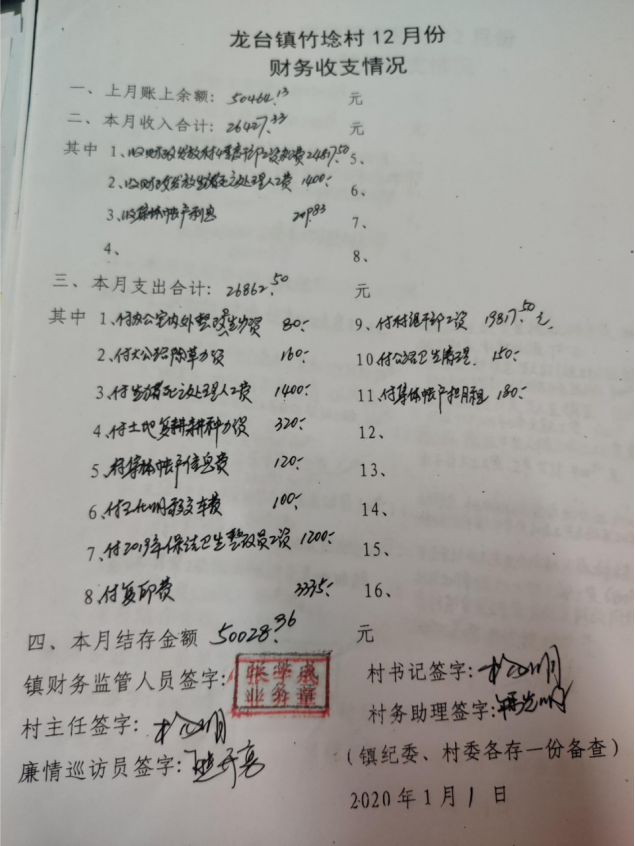 龙台镇竹埝村12月份
财务收支情况
一、上月账上余额：50464.13 元
二、本月收入合计：26427.33 元
其中 1、收财政发放村 干部工资 费24817.50 5、
2、收财政发放 无 处理人工费 1400.- 6、
3、收集体帐户利息 209.83 7、
4、 8、
三、本月支出合计：26862.50 元
其中 1、付办公室内外整 资 80.- 9、付村组干部工资 19817.50元
2、付 公路除草力资 160.- 10、付公路卫生清理 150.-
3、付 无 处理人工费 1400.- 11、付集体帐户 180.-
4、付土地复耕耕种力资 320.- 12、
5、 集体帐户信息费 120.- 13、
6、付 明 交车费 100.- 14、
7、付2019年保洁卫生 员工资 1200.- 15、
8、付复印费 3335.- 16、
四、本月结存金额 50028.96 元
镇财务监管人员签字： 张学成 业务章 村书记签字：
村主任签字： 村务助理签字：
廉情巡访员签字： （镇纪委、村委各存一份备查）
2020年1月1日